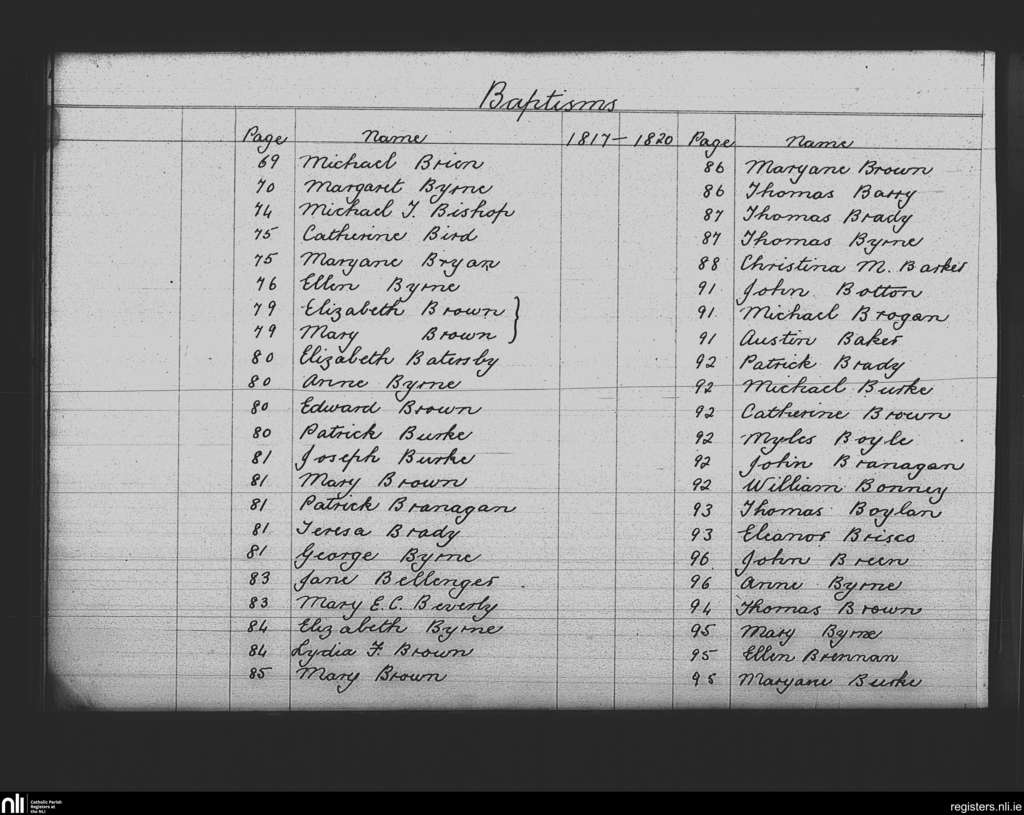 Baptisms
Page Name 1817 - 1820 Page Name
69 Michael Brien
70 Margaret Byrne
74 Michael T. Bishop
75 Catherine Bird
75 Maryane Bryan
76 Ellen Byrne
79 Elizabeth Brown
79 Mary Brown
80 Elizabeth Batersby
80 Anne Byrne
80 Edward Brown
80 Patrick Burke
81 Joseph Burke
81 Mary Brown
81 Patrick Branagan
81 Teresa Brady
81 George Byrne
83 Jane Bellenger
83 Mary E. C. Beverly
84 Elizabeth Byrne
84 Lydia F. Brown
85 Mary Brown
86 Maryane Brown
86 Thomas Barry
87 Thomas Brady
87 Thomas Byrne
88 Christina M. Barker
91 John Botton
91 Michael Brogan
91 Austin Baker
92 Patrick Brady
92 Michael Burke
92 Catherine Brown
92 Myles Boyle
92 John Branagan
92 William Bonney
93 Thomas Boylan
93 Eleanor Brisco
96 John Breen
96 Anne Byrne
94 Thomas Brown
95 Mary Byrne
95 Ellen Brennan
95 Maryane Burke
nli Catholic Parish
Registers at
the NLI
registers.nli.ie